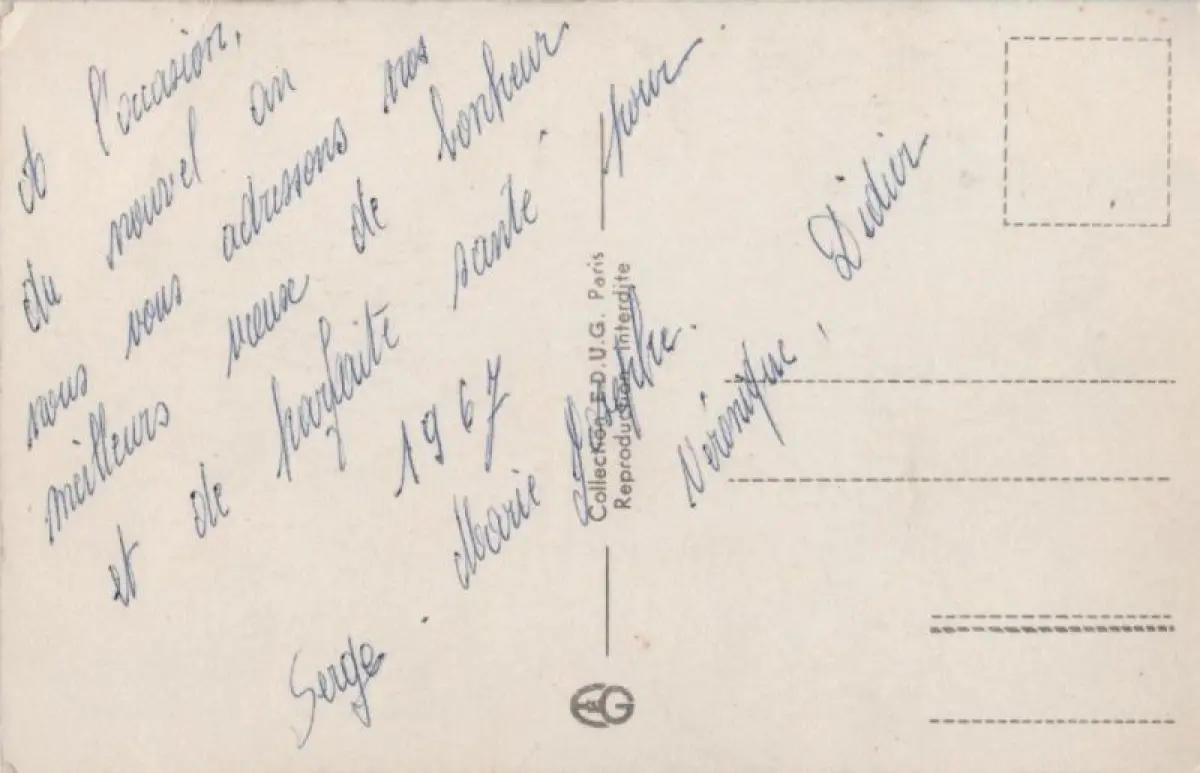 à l'occasion,
du nouvel an
nous vous adressons nos
meilleurs vœux de bonheur
et de parfaite santé pour
1967
Serge. Marie Josèphe.
Véronique, Didier
Collection E.D.U.G. Paris
Reproduction Interdite